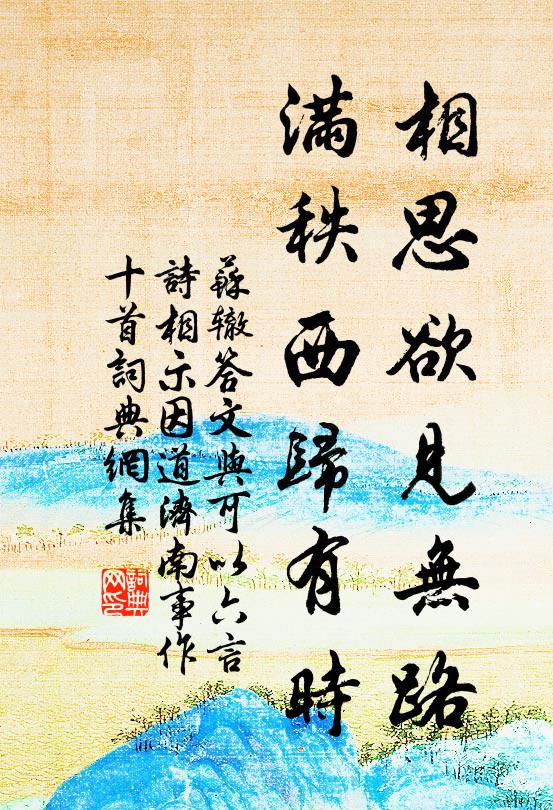 相思欲見無路
滿秩西歸有時
蘇轍答文與可以六言
詩相示因道濟南事作
十首詞典網集
詞典
网印